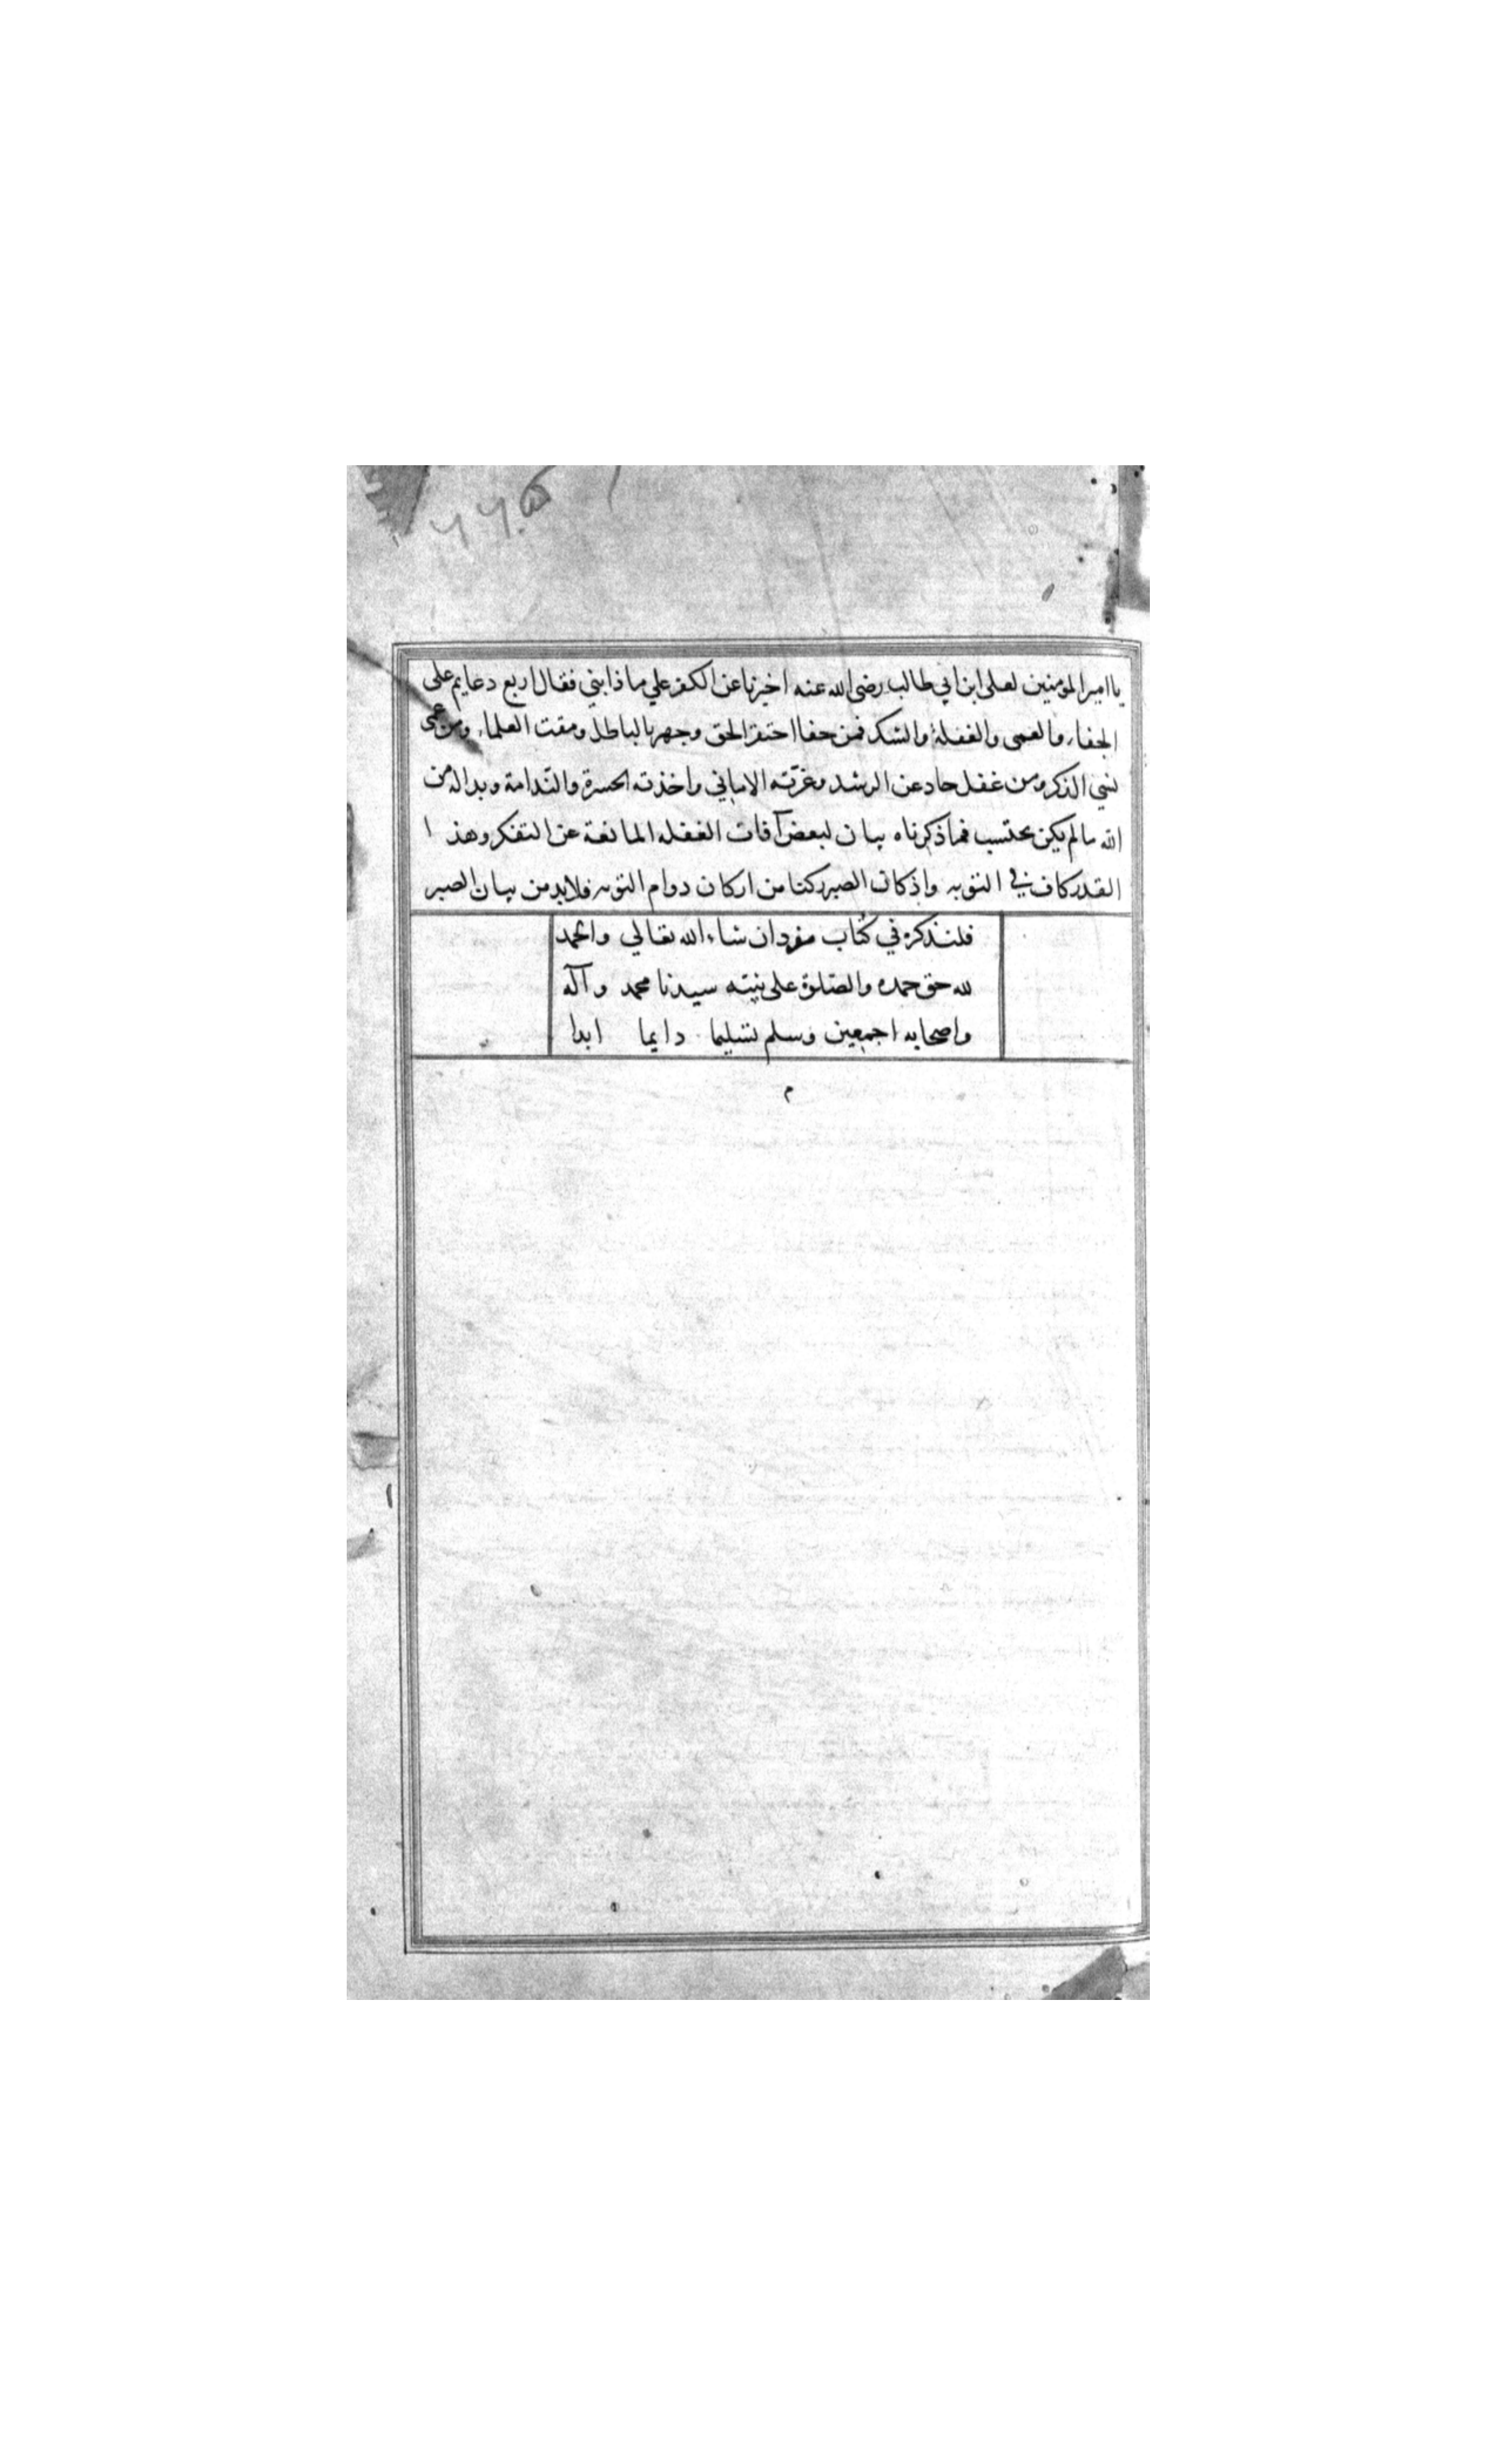 يا امير المؤمنين لعلى ابن ابي طالب رضى الله عنه اخبرنا عن الكفر علي ماذا بني فقال اربع دعايم على
الجفاء والعمى والغفلة والشك فمن جفا احتقر الحق وجهر بالباطل ومقت العلماء ومن عمى
نسي الذكر ومن غفل حاد عن الرشد وغرّته الاماني واخذته الحسرة والنّدامة وبدا له من
الله ما لم يكن يحتسب فما ذكرناه بيان لبعض آفات الغفله المانعة عن التفكر وهذا
القدر كاف في التوبه واذ كان الصبر ركنا من اركان دوام التوبه فلا بد من بيان الصبر
فلنذكره في كتاب مفرد ان شاء الله تعالي والحمد
لله حق حمده والصّلوة على نبيّه سيدنا محمد وآله
واصحابه اجمعين وسلم تسليما دايما ابدا
م